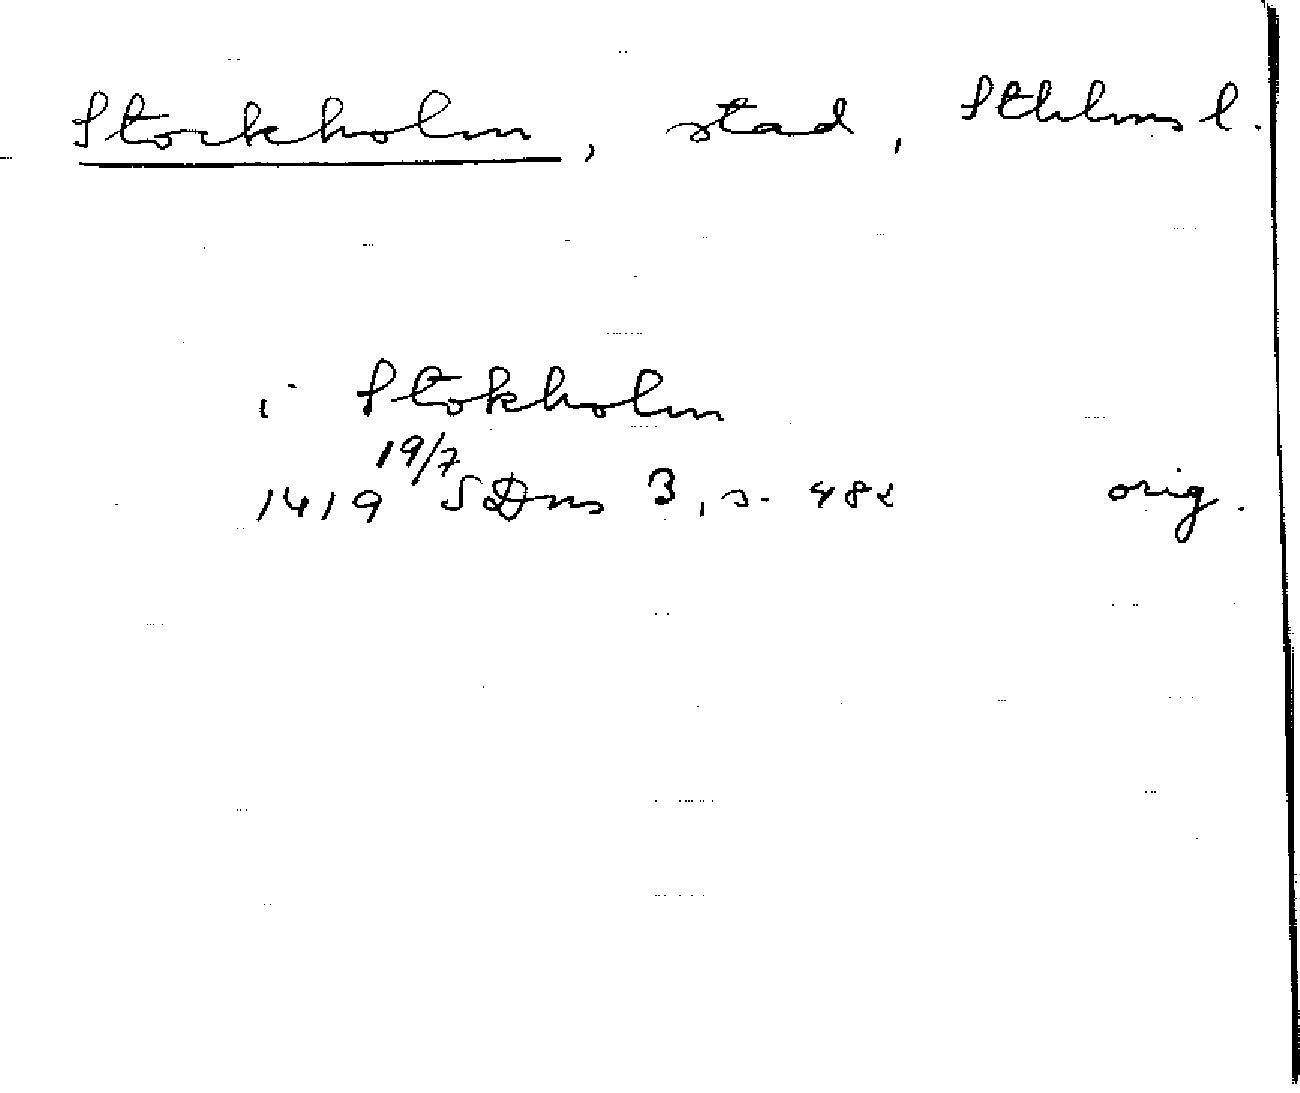 Stockholm, stad, Sthlms l.
i Stokholm
1419 19/7 SDns 3, s. 482 orig.